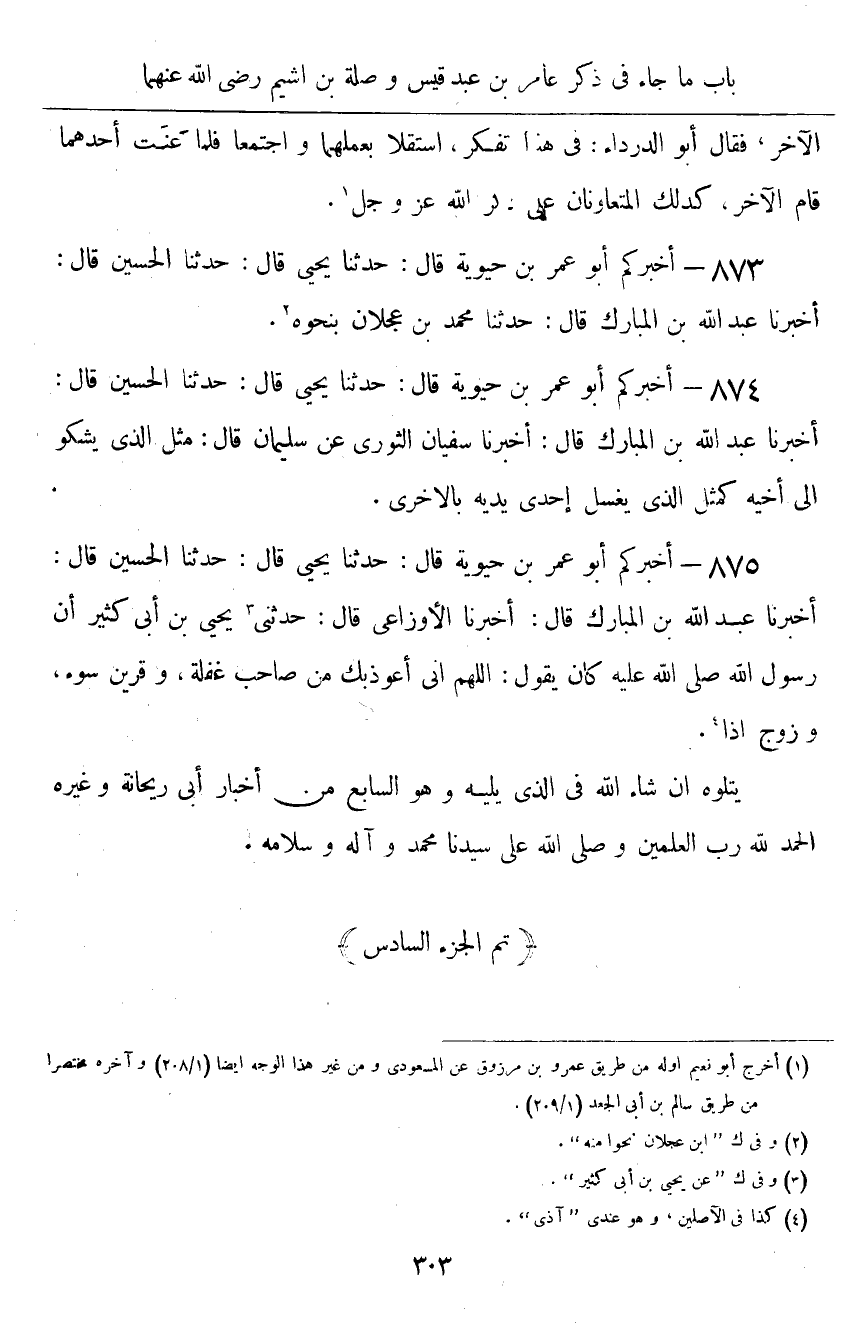 باب ما جاء فى ذكر عامر بن عبد قيس و صلة بن اشيم رضى الله عنهما
الآخر، فقال أبو الدرداء: فى هذا تفكر، استقلا بعملهما و اجتمعا فلما عنت أحدهما
قام الآخر، كدلك المتعاونان على ـر الله عز و جل¹.
٨٧٣ – أخبركم أبو عمر بن حيوية قال: حدثنا يحيى قال: حدثنا الحسين قال:
أخبرنا عبد الله بن المبارك قال: حدثنا محمد بن عجلان بنحوه².
٨٧٤ – أخبركم أبو عمر بن حيوية قال: حدثنا يحيى قال: حدثنا الحسين قال:
أخبرنا عبد الله بن المبارك قال: أخبرنا سفيان الثورى عن سليمان قال: مثل الذى يشكو
الى أخيه كمثل الذى يغسل إحدى يديه بالاخرى.
٨٧٥ – أخبركم أبو عمر بن حيوية قال: حدثنا يحيى قال: حدثنا الحسين قال:
أخبرنا عبد الله بن المبارك قال: أخبرنا الأوزاعى قال: حدثنى³ يحيى بن أبى كثير أن
رسول الله صلى الله عليه كان يقول: اللهم انى أعوذبك من صاحب غفلة، و قرين سوء،
و زوج اذا⁴.
يتلوه ان شاء الله فى الذى يليه و هو السابع من أخبار أبى ريحانة و غيره
الحمد لله رب العلمين و صلى الله على سيدنا محمد و آله و سلامه.
﴿ تم الجزء السادس ﴾
(١) أخرج أبو نعيم اوله من طريق عمرو بن مرزوق عن المسعودى و من غير هذا الوجه ايضا (٢٠٨/١) و آخره مختصرا
من طريق سالم بن أبى الجعد (٢٠٩/١).
(٢) و فى ك ”ابن عجلان نحوا منه“.
(٣) و فى ك ”عن يحيى بن أبى كثير“.
(٤) كذا فى الآصلين، و هو عندى ”آذى“.
٣٠٣